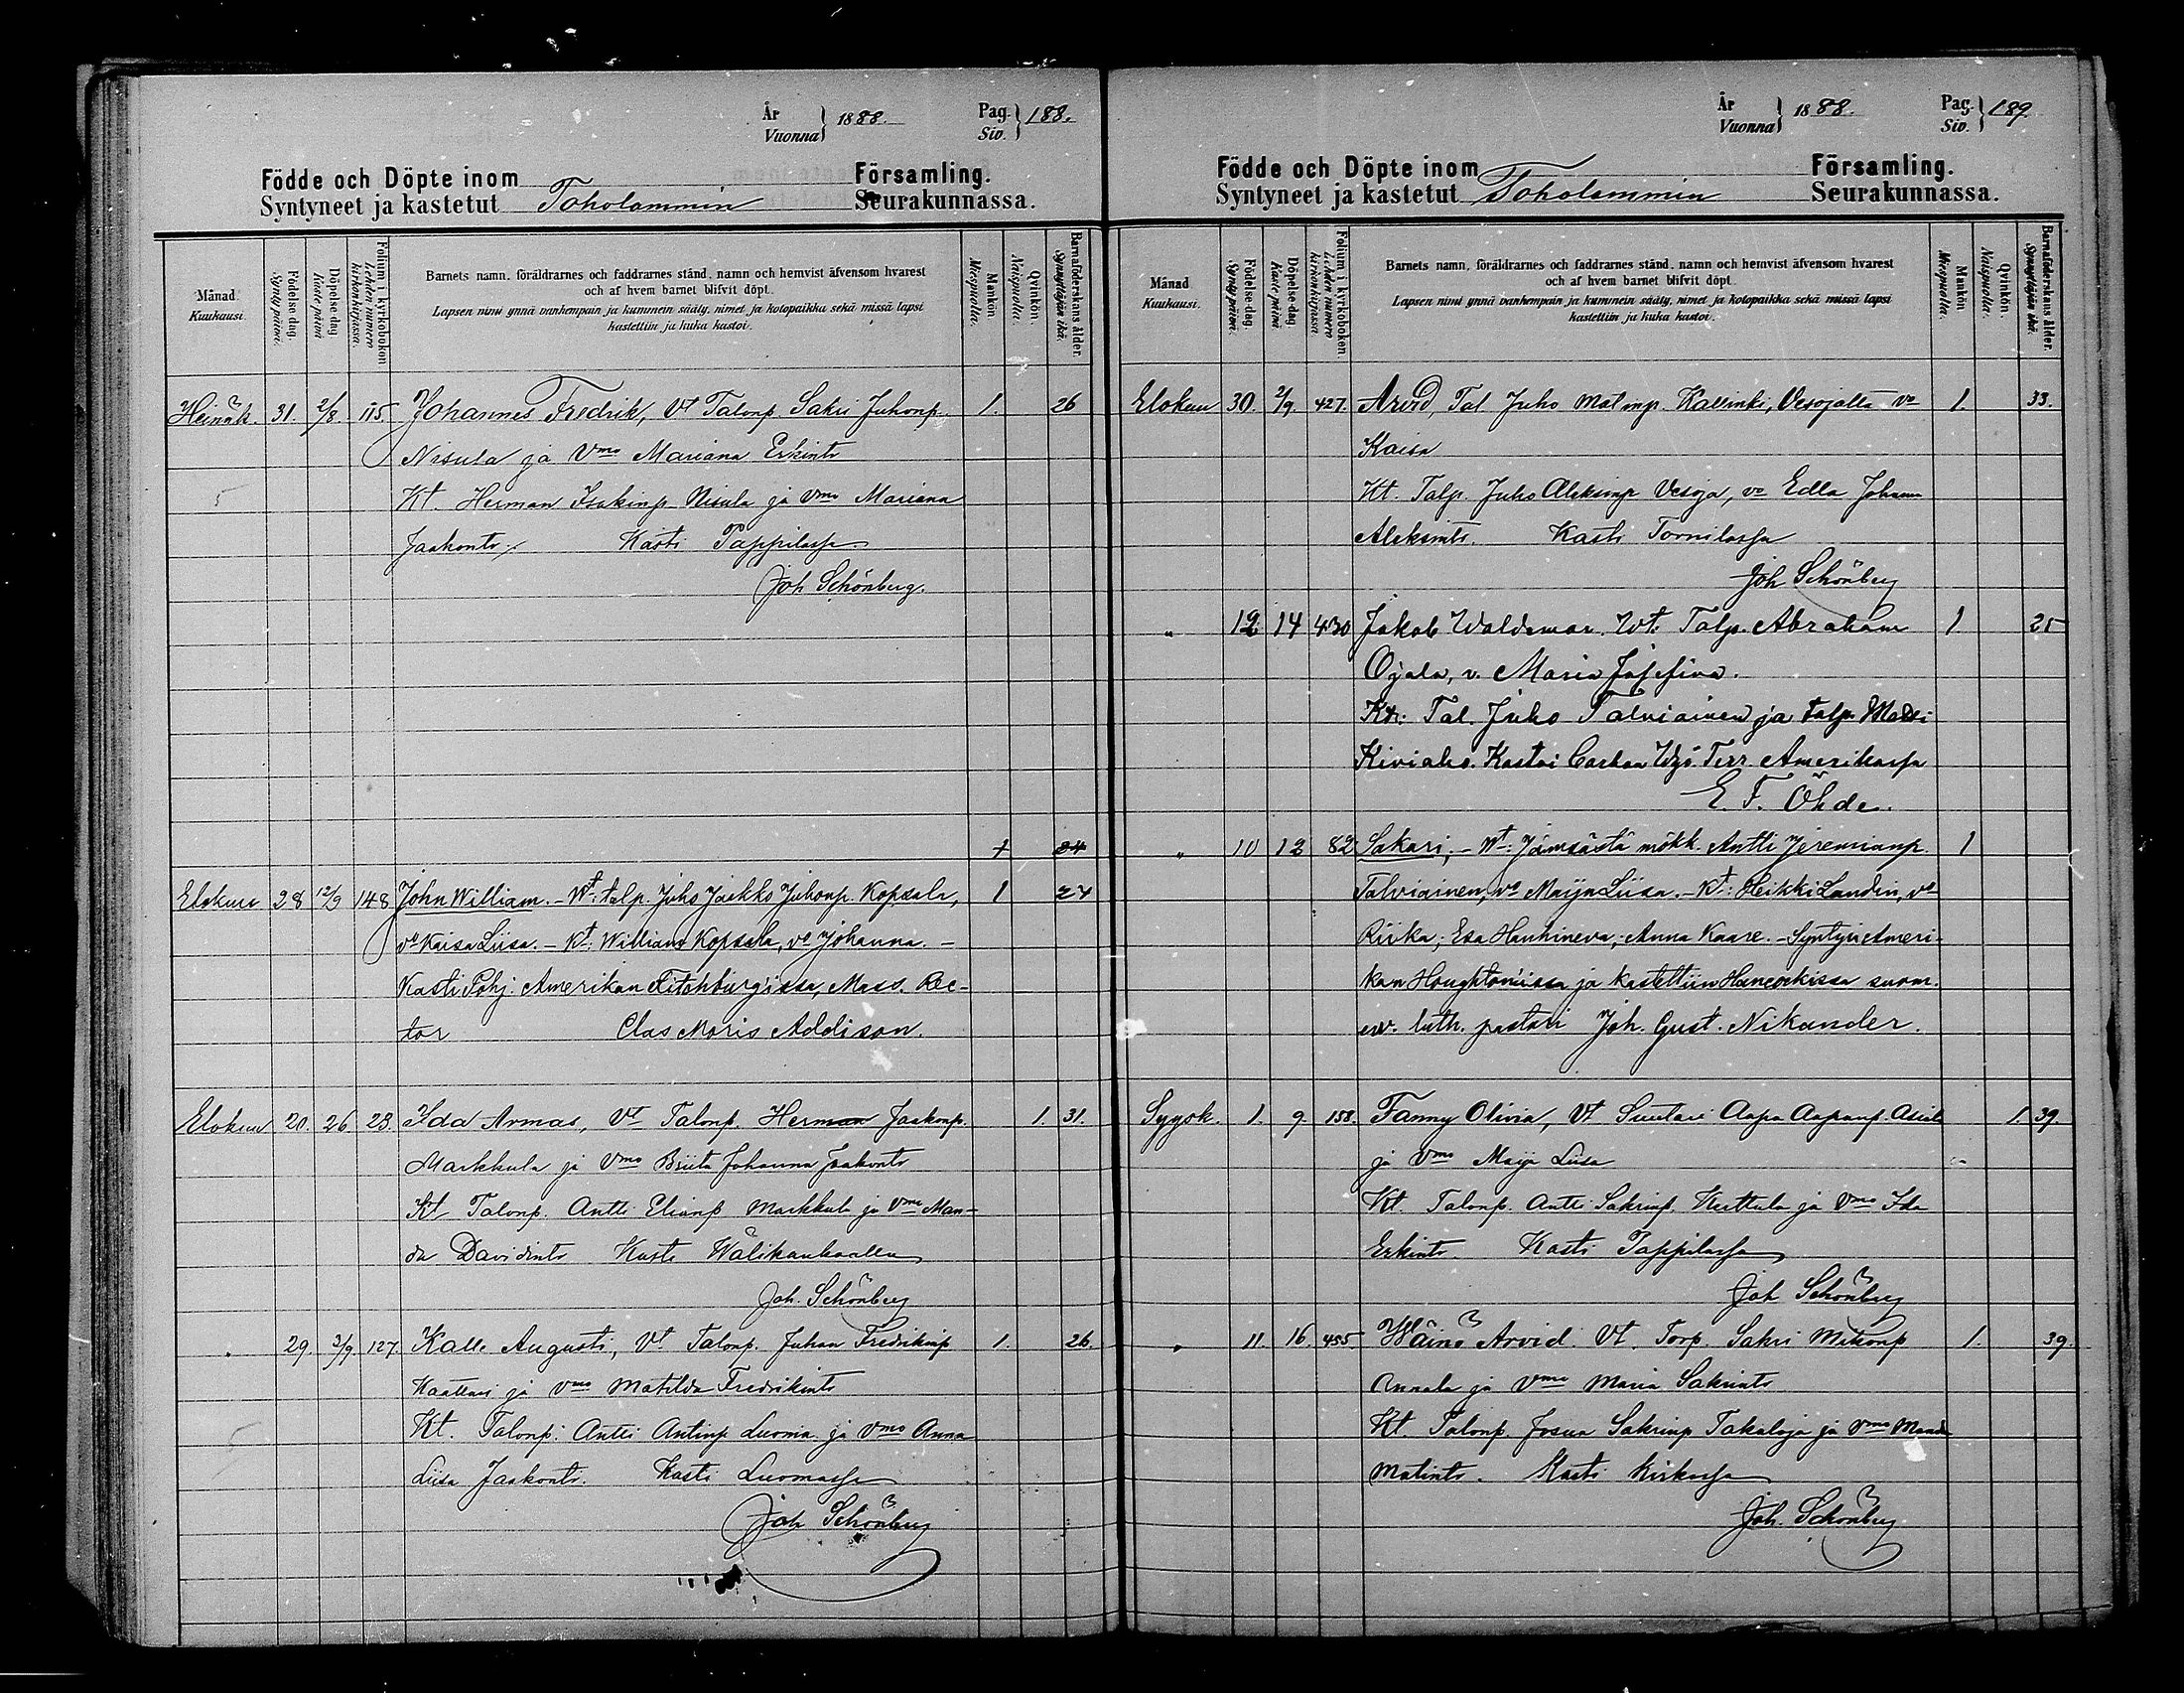 År
Vuonna } 1888.
Pag.
Siv. } 188.
Födde och Döpte inom Församling.
Syntyneet ja kastetut Toholammin Seurakunnassa.
Månad.
Kuukausi.
Födelse-dag.
Syntypäivä.
Döpelse-dag.
Kastepäivä
Folium i kyrkoboken
Lehden numero kirkonkirjassa.
Barnets namn, föräldrarnes och faddrarnes stånd, namn och hemvist äfvensom hvarest
och af hvem barnet blifvit döpt.
Lapsen nimi ynnä vanhempain ja kummein sääty, nimet ja kotopaikka sekä missä lapsi
kastettiin ja kuka kastoi.
Mankön
Miespuolia.
Qvinkön.
Naispuolia.
Barnaföderskans ålder.
Synnyttäjän ikä.
Heinäk. 31. 2/8. 115. Johannes Fredrik, Vt Talonp. Sakri Juhonp. 1. 26
Nisula ja Vmo Mariana Erkintr
Kt. Herman Isakinp. Nisula ja Vmo Mariana
Jaakontr. Kasti Pappilassa
Joh Schönberg.
+ 24
Elokuu 28 12/9 148 John William. - Wt: talp. Juho Jaakko Juhonp. Kopsala, 1 27
vo Kaisa Liisa. - Kt: William Kopsala, vo Johanna. -
Kasti Pohj. Amerikan Fitchburg'issa, Mass. Rec-
tor Clas Moris Addison.
Elokuu 20. 26 23. Ida Armas, Vt Talonp. Herman Jaakonp. 1. 31.
Markkula ja Vmo Briita Johanna Jaakontr
Kt Talonp. Antti Elianp Markkula ja Vmo Man-
da Davidintr Kasti Wälikankaalla
Joh. Schönberg
" 29. 2/9. 127. Kalle Augusti, Vt Talonp. Juhan Fredrikinp 1. 26.
ja Vmo Matilda Fredrikintr
Kt. Talonp. Antti Antinp Luoma ja Vmo Anna
Liisa Jaakontr. Kasti Luomassa
Joh Schönberg
År
Vuonna } 1888.
Pag.
Siv. } 189.
Födde och Döpte inom Församling.
Syntyneet ja kastetut Toholammin Seurakunnassa.
Månad
Kuukausi.
Födelse-dag.
Syntypäivä.
Döpelse-dag
Kastepäivä
Folium i kyrkoboken
Lehden numero kirkonkirjassa
Barnets namn, föräldrarnes och faddrarnes stånd, namn och hemvist äfvensom hvarest
och af hvem barnet blifvit döpt.
Lapsen nimi ynnä vanhempain ja kummein sääty, nimet ja kotopaikka sekä missä lapsi
kastettiin ja kuka kastoi.
Mankön
Miespuolia.
Qvinkön.
Naispuolia.
Barnaföderskans ålder.
Synnyttäjän ikä.
Elokuu 30. 2/9. 427. Arvid, Tal Juho Matinp. Kallinki, Vesojalta vo 1. 33.
Kaisa
Kt. Talp. Juho Aleksinp Vesoja, vo Edla Johanna
Aleksintr. Kasti Tornilassa
Joh Schönberg
" 12 14 430 Jakob Waldemar. Wt: Talp. Abraham 1 25
Ojala, v. Maria Josefina.
Kt: Tal. Juho Talviainen ja talp. Matti
Kiviaho. Kastoi Carbon Wyo. Terr. Amerikassa
E. F. Öhde.
" 10 12 82 Sakari, - Wt: Jämsästä mökk. Antti Jeremianp. 1
Talviainen, vo Maija Liisa. - Kt: Heikki Landin, vo
Riika; Esa Hanhineva; Anna Kaare. - Syntyi Ameri-
kan Houghton'issa ja kastettiin Hancockissa suom.
ev. luth. pastori Joh. Gust. Nikander.
Syysk. 1. 9. 158. Fanny Olivia, Vt Suutari Aapo Aapanp. Asiala 1. 39.
ja Vmo Maija Liisa
Kt. Talonp. Antti Sakrinp. Kerttula ja Vmo Ida
Erkintr Kasti Pappilassa
Joh Schönberg
" 11. 16. 455. Wäinö Arvid. Vt. Torp. Sakri Mitkonp 1. 39.
Annala ja Vmo Maria Sakrintr
Kt. Talonp. Josua Sakrinp Takaloja ja Vmo Manda
Matintr. Kasti Kirkossa
Joh. Schönberg